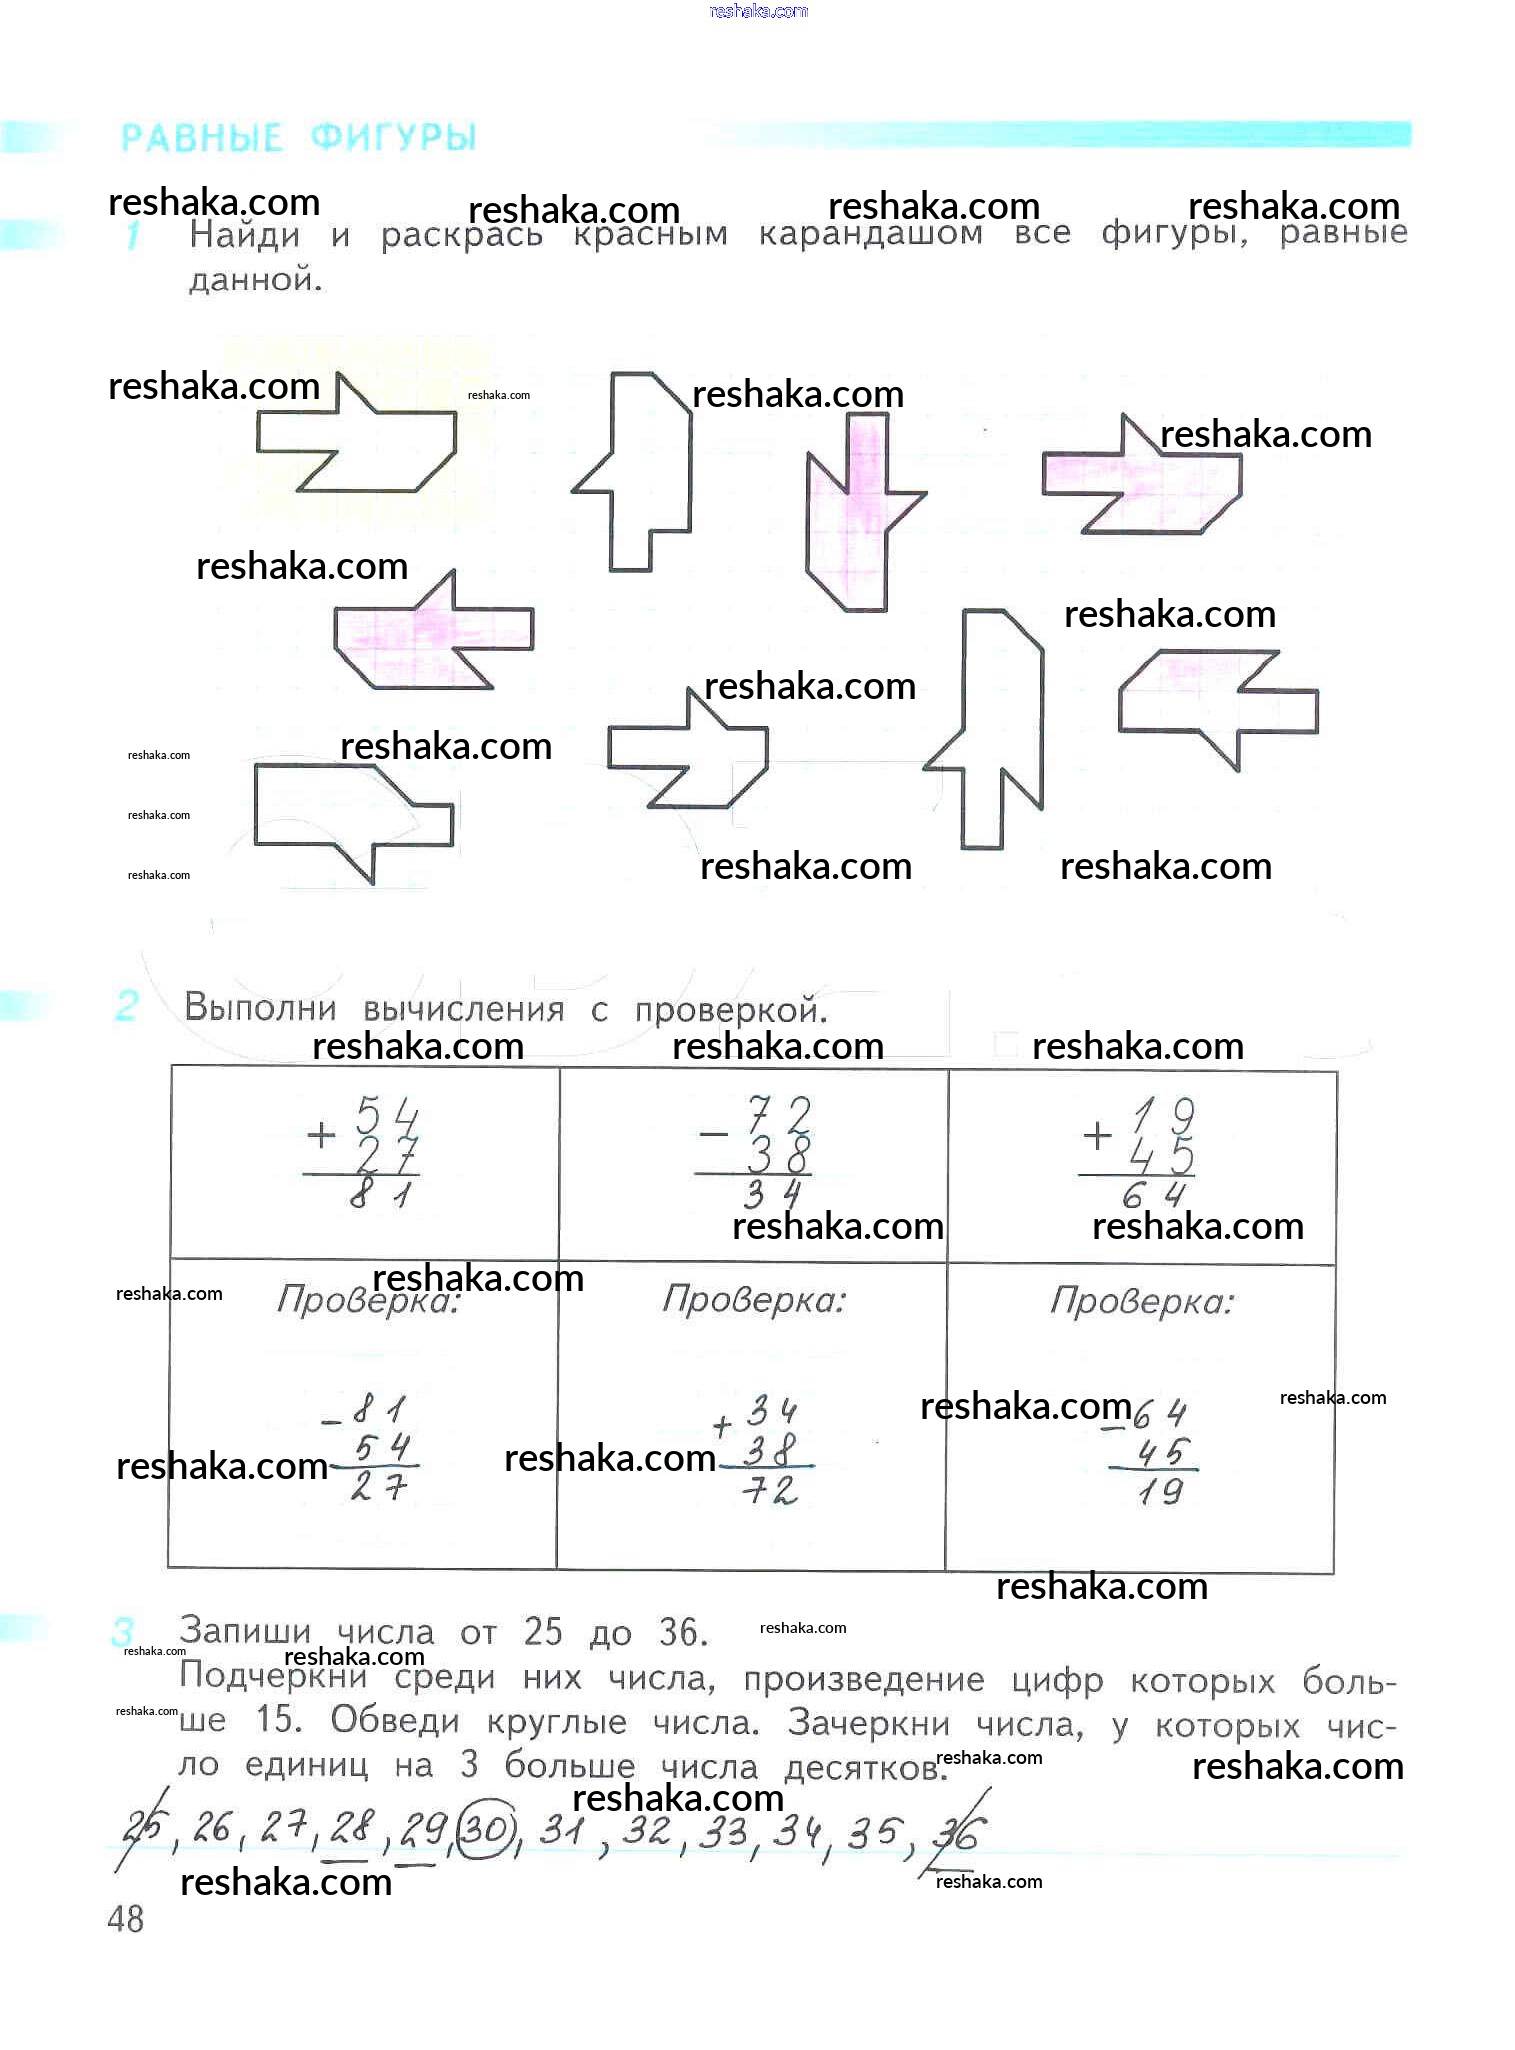 reshaka.com
РАВНЫЕ ФИГУРЫ
reshaka.com reshaka.com reshaka.com reshaka.com
1 Найди и раскрась красным карандашом все фигуры, равные
данной.
reshaka.com reshaka.com reshaka.com
reshaka.com
reshaka.com
reshaka.com
reshaka.com
reshaka.com reshaka.com
reshaka.com
reshaka.com reshaka.com reshaka.com
2 Выполни вычисления с проверкой.
reshaka.com reshaka.com reshaka.com
+ 54 − 72 + 19
27 38 45
81 34 64
reshaka.com reshaka.com
reshaka.com
reshaka.com
Проверка: Проверка: Проверка:
− 81 + 34 − 64
reshaka.com reshaka.com
54 38 45
reshaka.com reshaka.com
27 72 19
reshaka.com
3 Запиши числа от 25 до 36.
reshaka.com
reshaka.com reshaka.com
Подчеркни среди них числа, произведение цифр которых боль-
reshaka.com
ше 15. Обведи круглые числа. Зачеркни числа, у которых чис-
ло единиц на 3 больше числа десятков.
reshaka.com reshaka.com
reshaka.com
25, 26, 27, 28, 29, 30, 31, 32, 33, 34, 35, 36
reshaka.com reshaka.com
48